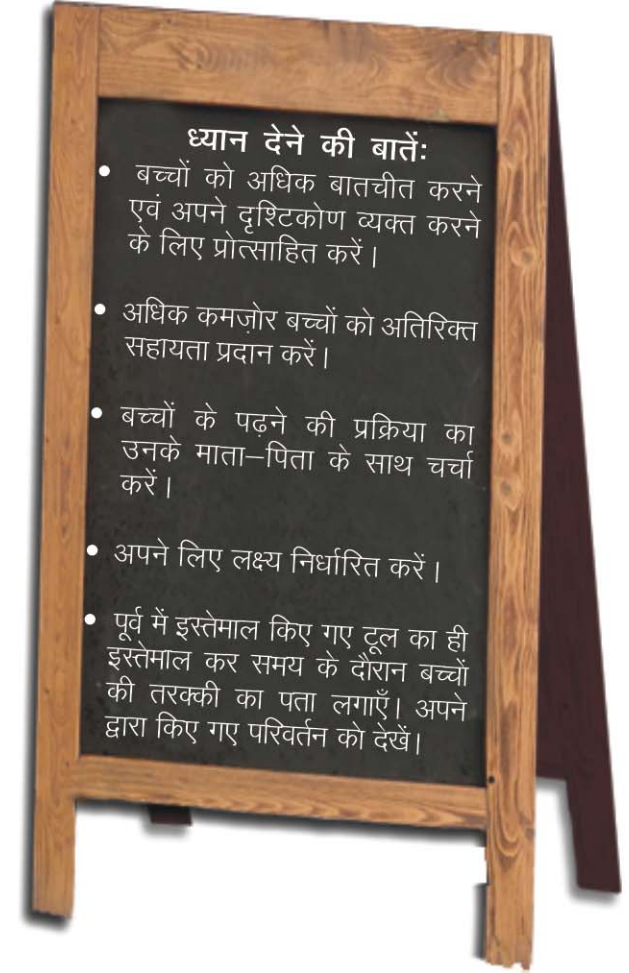 ध्यान देने की बातें:
• बच्चों को अधिक बातचीत करने
एवं अपने दृश्टिकोण व्यक्त करने
के लिए प्रोत्साहित करें।
• अधिक कमज़ोर बच्चों को अतिरिक्त
सहायता प्रदान करें।
• बच्चों के पढ़ने की प्रक्रिया का
उनके माता–पिता के साथ चर्चा
करें।
• अपने लिए लक्ष्य निर्धारित करें।
• पूर्व में इस्तेमाल किए गए टूल का ही
इस्तेमाल कर समय के दौरान बच्चों
की तरक्की का पता लगाएँ। अपने
द्वारा किए गए परिवर्तन को देखें।